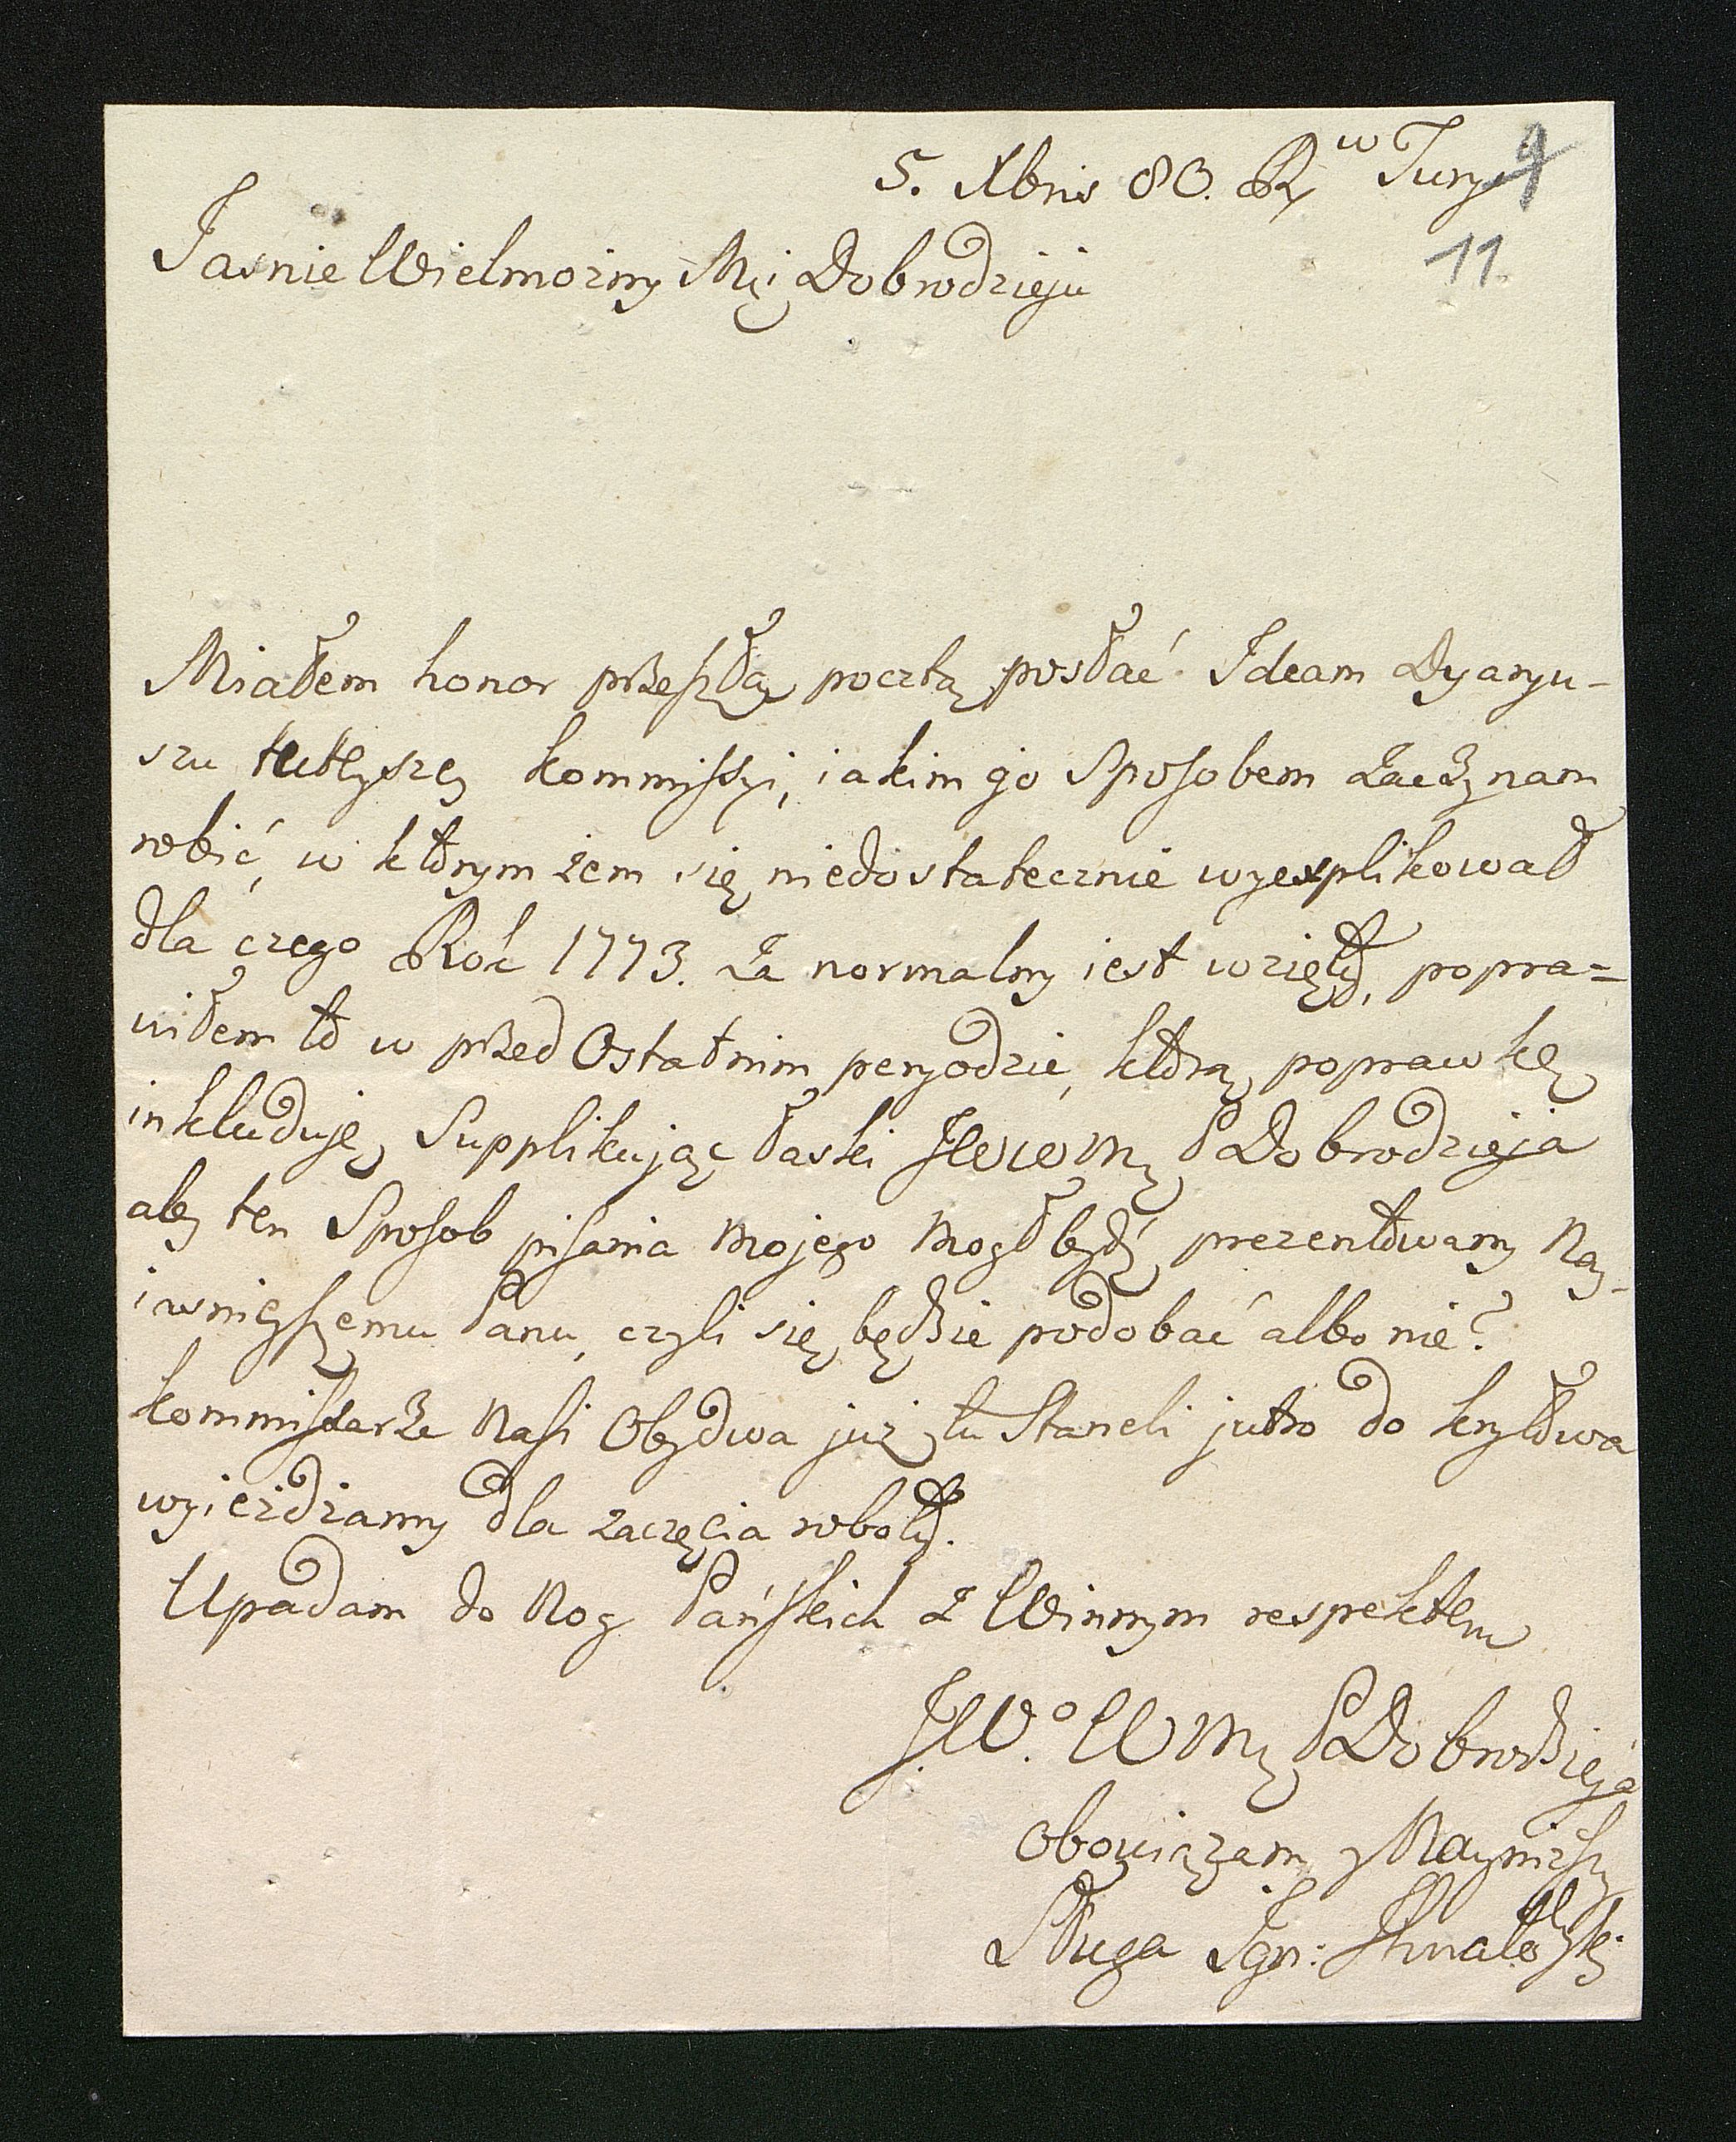 5. Xbris 80. R w Tury
9
11.
Jasnie Wielmożny Mci Dobrodzieju
Miałem honor przeszłą pocztą posłać Ideam Dyaryu-
szu tuteyszey kommissyi, iakim go Sposobem zaczynam
robić, w ktorym żem się niedostatecznie wyexplikował
dla czego Rok 1773. za normalny iest wzięty, popra=
wiłem to w przed Ostatnim peryodzie, ktorą poprawkę
inkluduję, Supplikując łaski JWWMci PDobrodzieja
aby ten Sposob pisania mojego mogł bydź prezentowany Nay-
iasnieyszemu Panu, czyli się będzie podobać albo nie?
kommissarze Nasi Obydwa już tu Staneli jutro do krylowa
wyieżdżamy dla zaczęcia roboty.
Upadam do Nog Pańskich z Winnym respektem
JWo WMci PDobrodzieja
Obowiązany y Nayniższy
Sługa Ign: